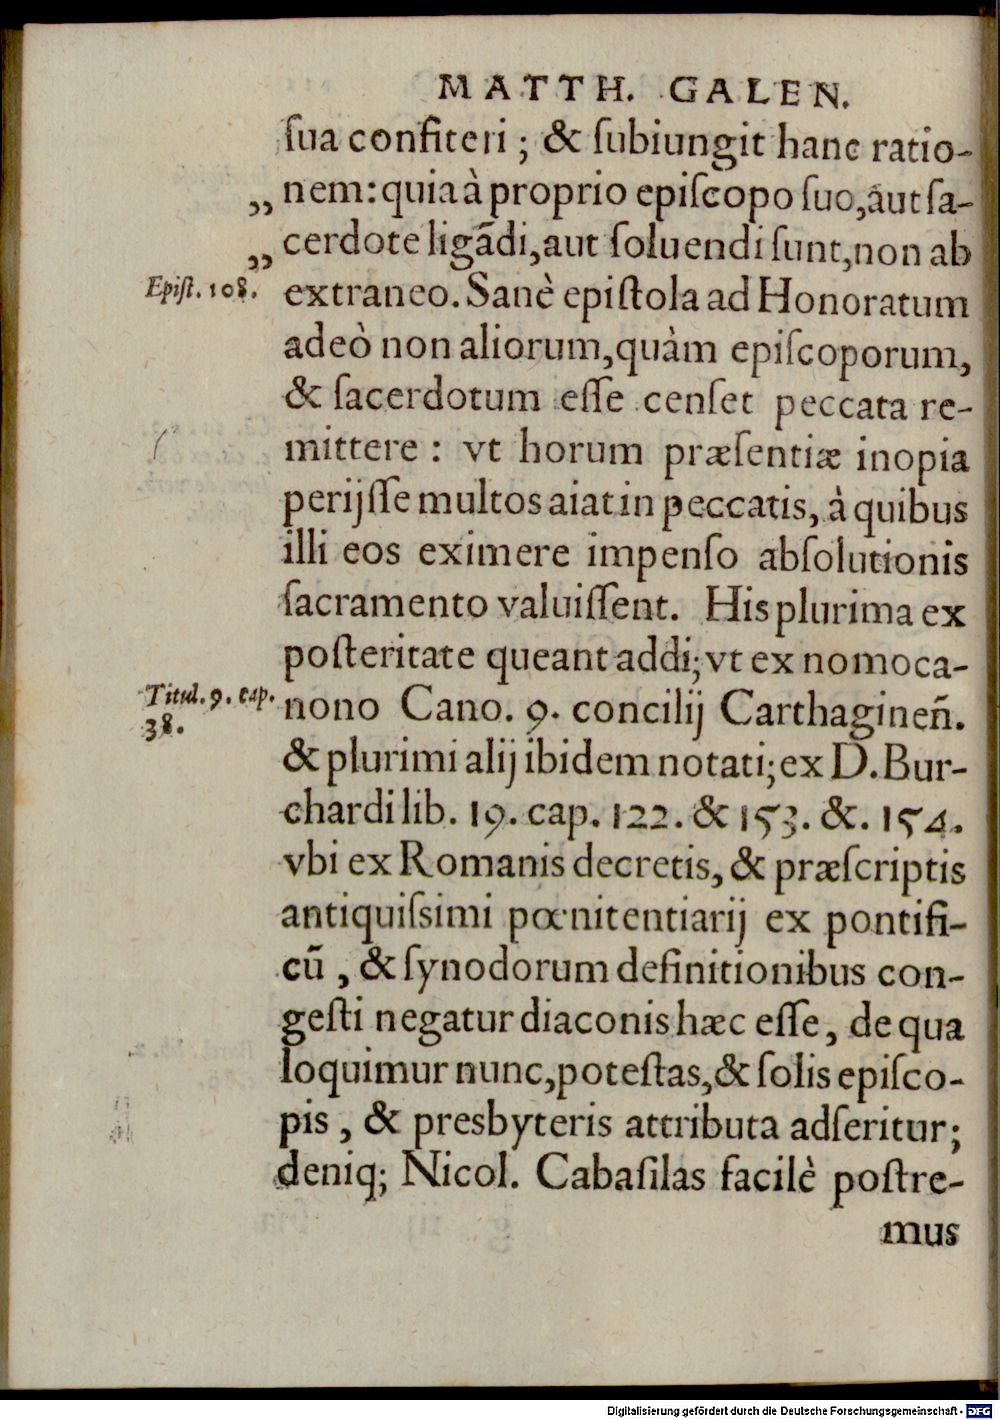 MATTH. GALEN.
ſua confiteri ; & ſubiungit hanc ratio-
„ nem: quia à proprio epiſcopo ſuo, aut ſa-
„ cerdote ligādi, aut ſoluendi ſunt, non ab
Epiſt. 108. extraneo. Sanè epiſtola ad Honoratum
adeò non aliorum, quàm epiſcoporum,
& ſacerdotum eſſe cenſet peccata re-
mittere : vt horum præſentiæ inopia
perijſſe multos aiat in peccatis, à quibus
illi eos eximere impenſo abſolutionis
ſacramento valuiſſent. His plurima ex
poſteritate queant addi; vt ex nomoca-
Titul. 9. cap. nono Cano. 9. concilij Carthagineñ.
38.
& plurimi alij ibidem notati; ex D. Bur-
chardi lib. 19. cap. 122. & 153. &. 154.
vbi ex Romanis decretis, & præſcriptis
antiquiſsimi pœnitentiarij ex pontifi-
cū , & ſynodorum definitionibus con-
geſti negatur diaconis hæc eſſe, de qua
loquimur nunc, poteſtas, & ſolis epiſco-
pis , & presbyteris attributa adſeritur;
deniq; Nicol. Cabaſilas facilè poſtre-
mus
Digitalisierung gefördert durch die Deutsche Forschungsgemeinschaft - DFG